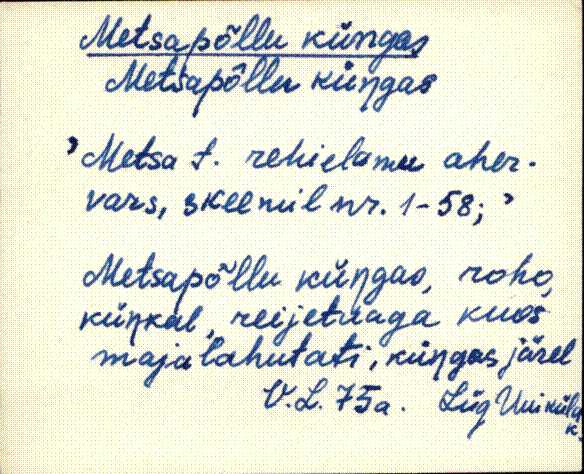 Metsapõllu küngas
Metsapõllu küŋgas
’Metsa t. rehielamu aher-
vars, skeemil nr. 1-58;’
Metsapõllu küŋgas, roho,
küŋkal, reijetuaga kuos
maja lahutati, küŋgas järel
V.L. 75a. Lüg Uniküla
k.